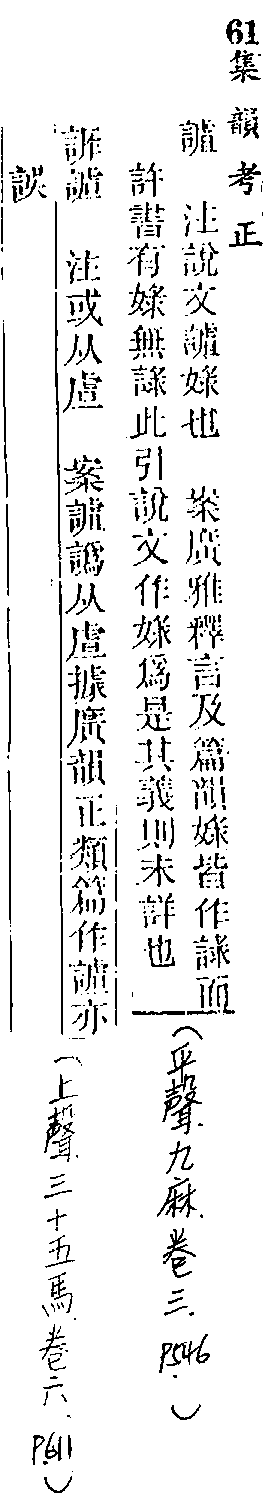 61集韻考正
䜐 注說文䜐㛦也 案廣雅釋言及篇韻㛦皆作𧩯而
許書有㛦無𧩯此引說文作㛦爲是其義則未詳也
(平聲九麻卷三.P546.)
䜐 注或从虘 案䜐譌从虘據廣韻正類篇作䜐亦
誤
(上聲三十五馬卷六.P.611)